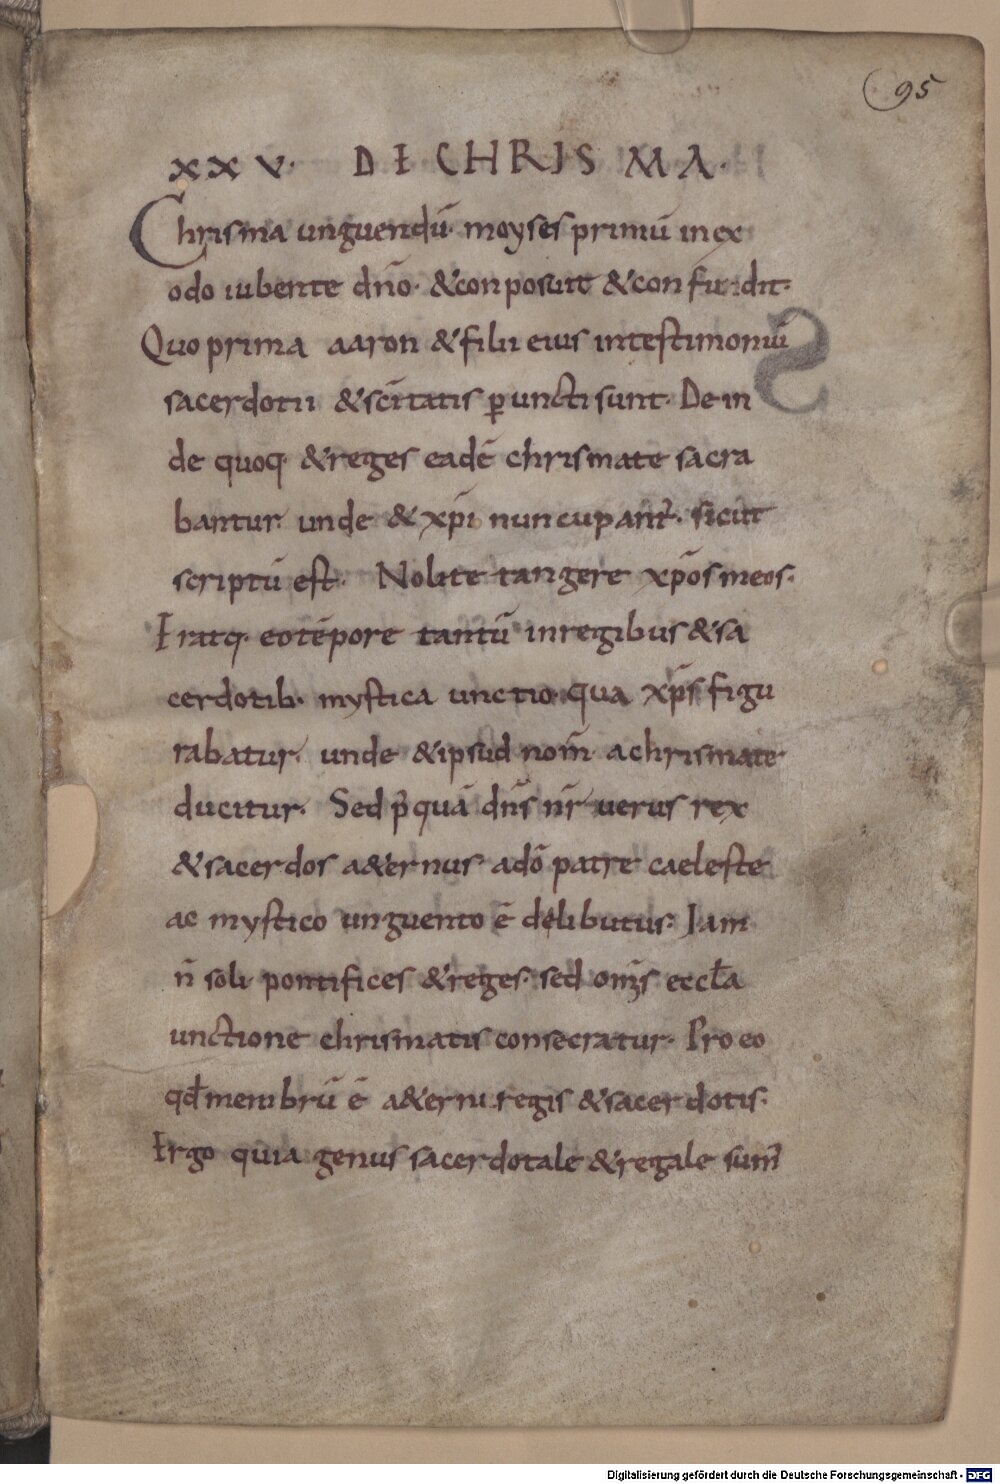 95
XXV. DE CHRISMA.
Chrisma unguendū moyses primū in ex
odo iubente dn̄o. & conposuit & confudit.
Quo prima aaron & filii eius in testimoniū
sacerdotii & sc̄itatis ꝑuncti sunt. Dein
de quoq. & reges eadē chrismate sacra
bantur unde & xp̄i nuncupant᷑. sicut
scriptū est. Nolite tangere xp̄os meos.
Eratq. eo tēpore tantū in regibus & sa
cerdotib. mystica unctio qua xp̄s figu
rabatur. unde & ipsud nom̄ a chrismate
ducitur. Sed p̄quā dn̄s nr̄ uerus rex
& sacerdos a&ernus. a dō patre caeleste
ac mystico unguento ē delibutus. Iam
n̄ soli pontifices & reges. sed om̄s eccl̄a
unctione chrismatis consecratur. Pro eo
qd̄ membrū ē a&erni regis & sacerdotis.
Ergo quia genus sacerdotale & regale sum᷒
Digitalisierung gefördert durch die Deutsche Forschungsgemeinschaft - DFG